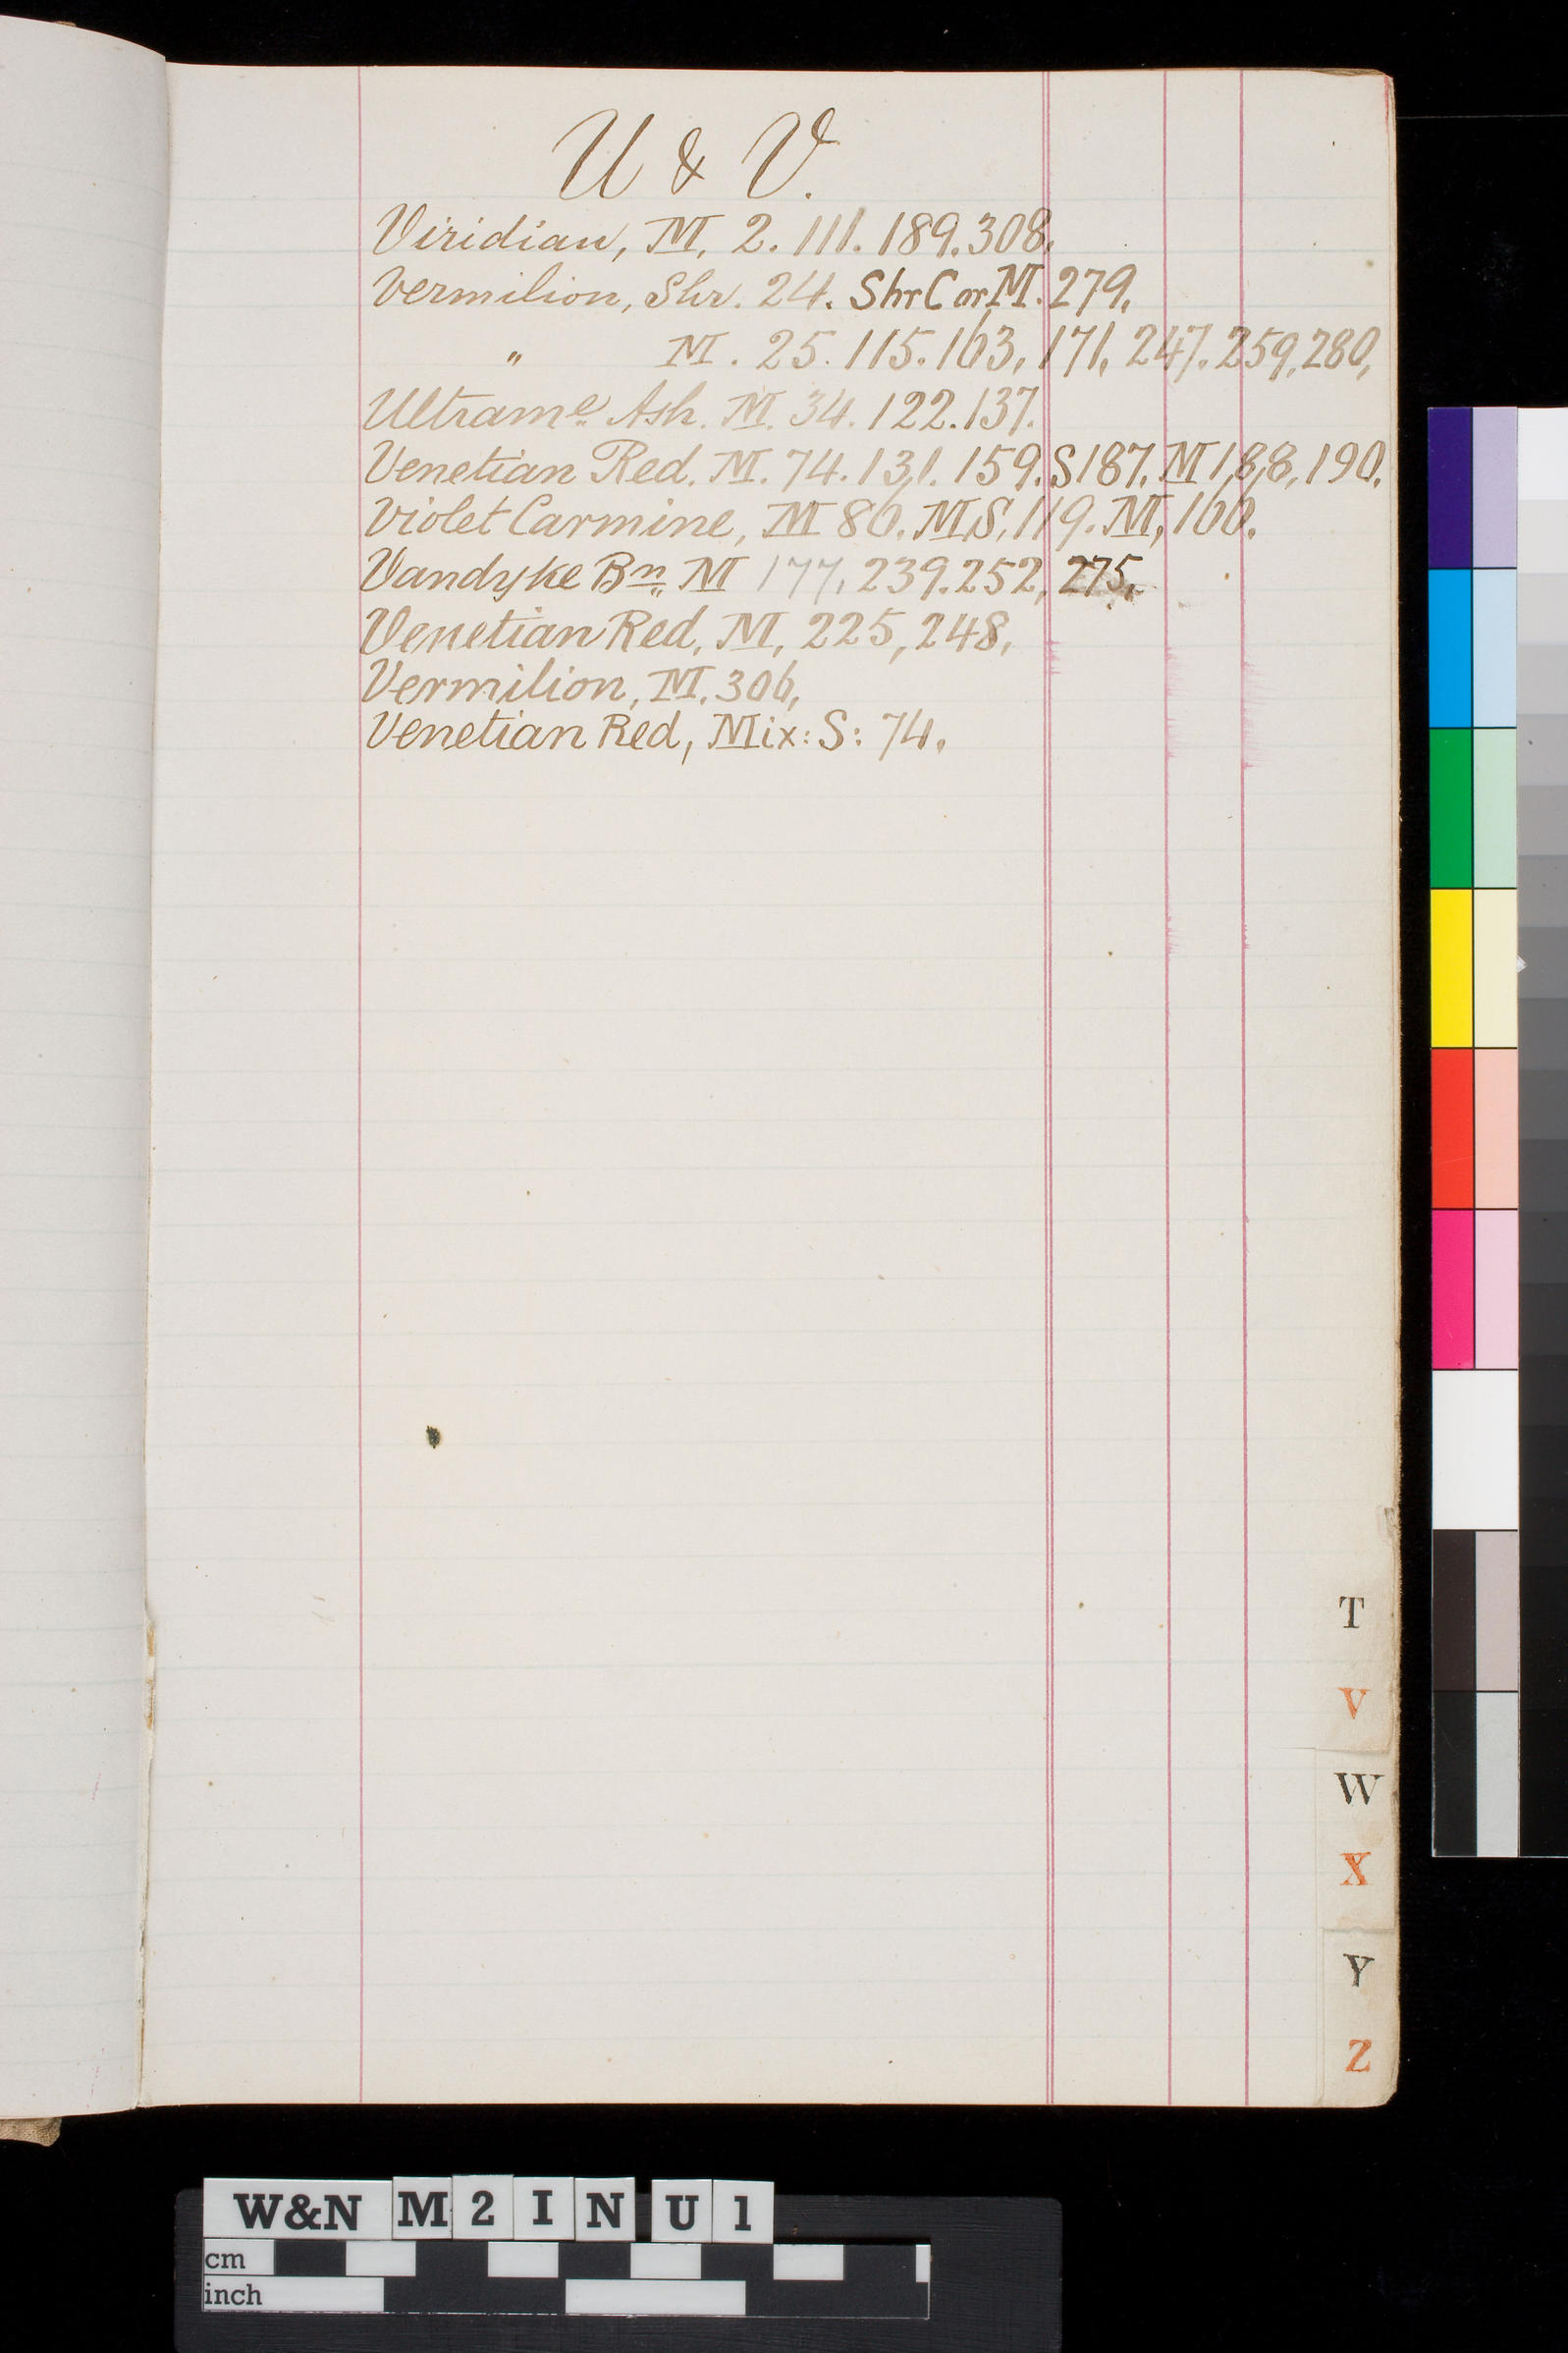 U & V.
Viridian, M. 2. 111. 189. 308.
Vermilion, Shr. 24. Shr C or M. 279.
" M. 25. 115. 163, 171, 247. 259, 280,
Ultrame. Ash. M. 34. 122. 137.
Venetian Red. M. 74. 131. 159. S 187. M 188, 190.
Violet Carmine, M 86. M.S, 119. M, 160.
Vandyke Bn. M 177, 239. 252, 275,
Venetian Red, M, 225, 248,
Vermilion, M. 306,
Venetian Red, Mix: S: 74.
T
V
W
X
Y
Z
W&N M2INU1
cm
inch